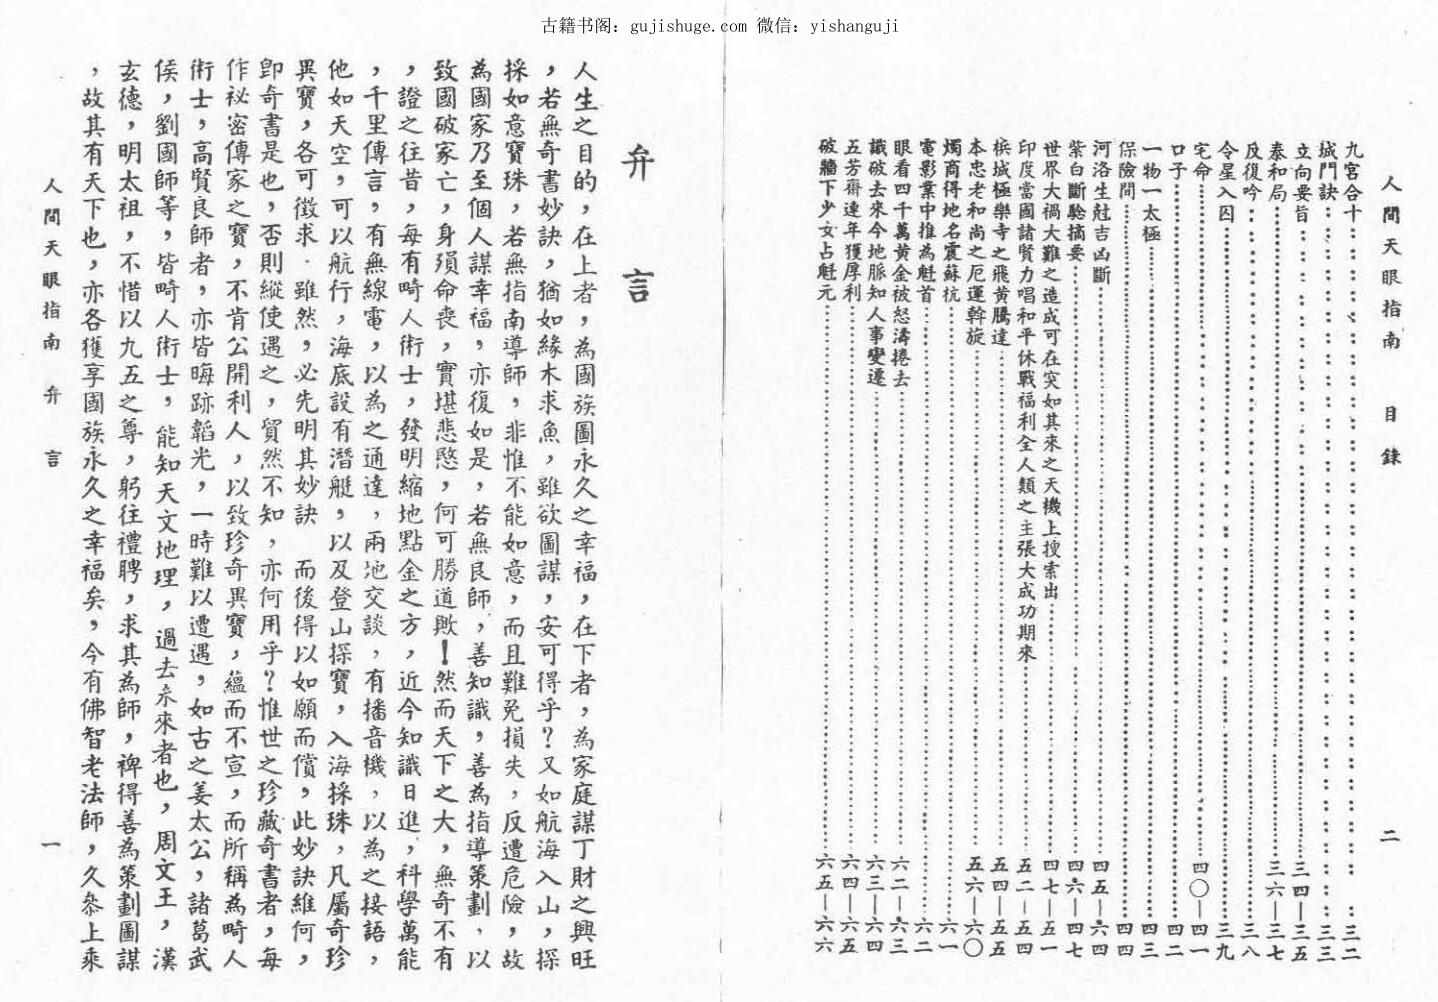 古籍书阁：gujishuge.com 微信：yishanguji
人間天眼指南 目錄 二
九宮合十 三二
城門訣 三三
立向要旨 三四—三五
泰和局 三六—三七
反復吟 三八
令星入囚 三九
宅命 四〇—四一
口子 四二
一物一太極 四三
保險問 四四
河洛生尅吉凶斷 四五—六四
紫白斷驗摘要 四六—四七
世界大禍大難之造成可在突如其來之天機上搜索出 四七—五一
印度當國諸賢力唱和平休戰福利全人類之主張大成功期來 五二—五四
檳城極樂寺之飛黃騰達 五四—五五
本忠老和尚之厄運斡旋 五六—六〇
燭商得地名震蘇杭 六一
電影業中推為魁首 六二
眼看四千萬黃金被怒濤捲去 六二—六三
識破去來今地脈知人事變遷 六三—六四
五芳齋連年獲厚利 六四—六五
破牆下少女占魁元 六五—六六
弁言
人生之目的，在上者，為國族圖永久之幸福，在下者，為家庭謀丁財之興旺
，若無奇書妙訣，猶如緣木求魚，雖欲圖謀，安可得乎？又如航海入山，探
採如意寶珠，若無指南導師，非惟不能如意，而且難免損失，反遭危險，故
為國家乃至個人謀幸福，亦復如是，若無良師，善知識，善為指導策劃，以
致國破家亡，身殞命喪，實堪悲愍，何可勝道歟！然而天下之大，無奇不有
，證之往昔，每有畸人術士，發明縮地點金之方，近今知識日進，科學萬能
，千里傳言，有無線電，以為之通達，兩地交談，有播音機，以為之接語，
他如天空，可以航行，海底設有潛艇，以及登山探寶，入海採珠，凡屬奇珍
異寶，各可徵求．雖然，必先明其妙訣 而後得以如願而償，此妙訣維何，
卽奇書是也，否則縱使遇之，貿然不知，亦何用乎？惟世之珍藏奇書者，每
作祕密傳家之寶，不肯公開利人，以致珍奇異寶，蘊而不宣，而所稱為畸人
術士，高賢良師者，亦皆晦跡韜光，一時難以遭遇，如古之姜太公，諸葛武
侯，劉國師等，皆畸人術士，能知天文地理，過去未來者也，周文王，漢
玄德，明太祖，不惜以九五之尊，躬往禮聘，求其為師，裨得善為策劃圖謀
，故其有天下也，亦各獲享國族永久之幸福矣，今有佛智老法師，久參上乘
人間天眼指南 弁言 一